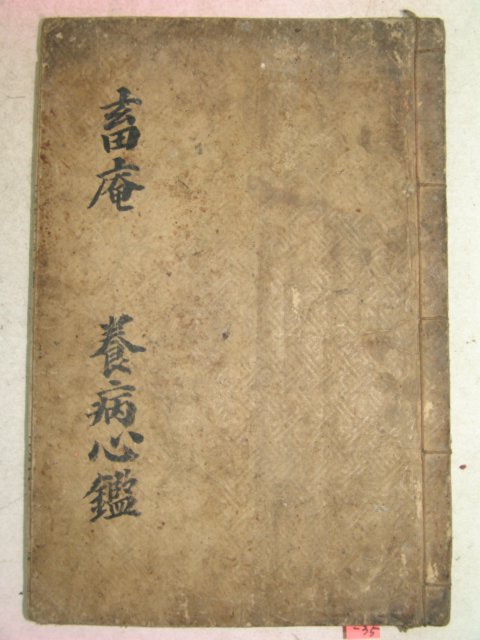 畜庵 養病心鑑
-35